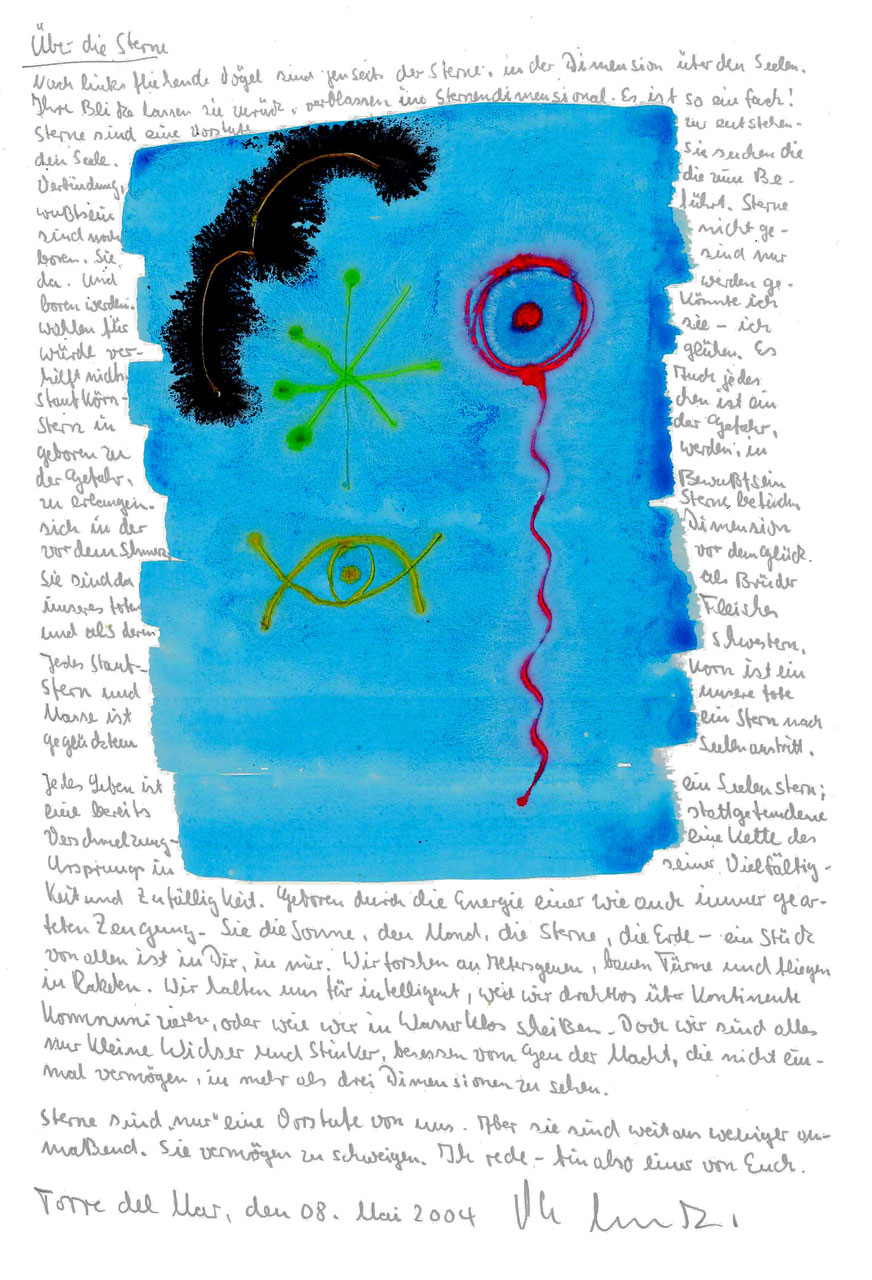 Über die Sterne
Nach links fliehende Vögel sind jenseits der Sterne, in der Dimension über den Seelen.
Ihre Blicke lassen sie zurück, verblassen ins Sternendimensional. Es ist so einfach!
Sterne sind eine Vorstufe zur entstehen-
den Seele. Sie suchen die
Verbindung, die zum Be-
wußtsein führt. Sterne
sind noch nicht ge-
boren. Sie sind nur
da. Und werden ge-
boren werden. Könnte ich
wählen für sie – ich
würde ver- glühen. Es
hilft nichts. Auch jedes
Staubkörn- chen ist ein
Stern in der Gefahr,
geboren zu werden, in
der Gefahr, Bewußtsein
zu erlangen. Sterne befinden
sich in der Dimension
vor dem Schmerz vor dem Glück.
Sie sind da als Brüder
unseres toten Fleisches
und als deren Schwestern.
Jedes Staub- Korn ist ein
Stern und unsere tote
Masse ist ein Stern nach
geglücktem Seelenantritt.
Jedes Leben ist ein Seelenstern;
eine bereits stattgefundene
Verschmelzung – eine Kette des
Ursprungs in seiner Vielfältig-
keit und Zufälligkeit. Geboren durch die Energie einer wie auch immer gear-
teten Zeugung. Sie die Sonne, den Mond, die Sterne, die Erde – ein Stück
von allen ist in Dir, in mir. Wir forschen an, bauen Türme und fliegen
in Raketen. Wir halten uns für intelligent, weil wir drahtlos über Kontinente
kommunizieren, oder weil wir in Wasserklos scheißen. Doch wir sind alles
nur kleine Wichser und Stinker, besessen vom Gen der Macht, die nicht ein-
mal vermögen, in mehr als drei Dimensionen zu sehen.
Sterne sind „nur“ eine Vorstufe von uns. Aber sie sind weitaus weniger an-
maßend. Sie vermögen zu schweigen. Ich rede – bin also einer von Euch.
Torre del Mar, den 08. Mai 2004